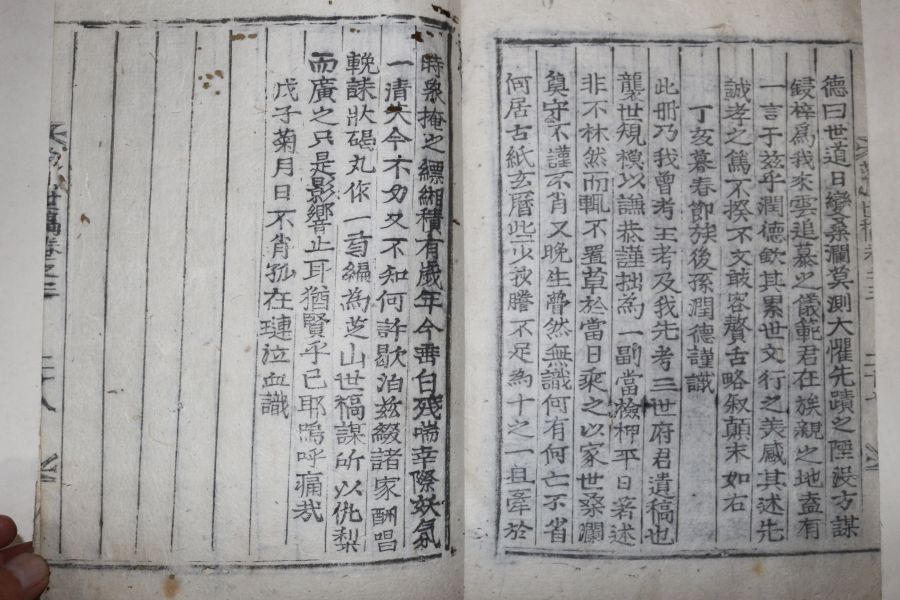 德曰世道日變桑瀾莫測大懼先蹟之堙沒方謀
鋟梓爲我來雲追慕之儀範君在族親之地盍有
一言于玆乎潤德欽其累世文行之美感其述先
誠孝之篤不揆不文敢容贅舌略叙顛末如右
丁亥暮春節族後孫潤德謹識
此册乃我曾考王考及我先考三世府君遺稿也
襲世規模以謙恭謹拙爲一副當撿柙平日著述
非不林然而輒不置草於當日乘之以家世桑瀾
負守不謹不肖又晚生瞢然無識何有何亡不省
何居古紙玄曆些少收謄不足為十之一且牽於
時象掩之縹緗積有歲年今番白殘喘幸際妖氛
一清矣今不勿又不知何許歇泊玆綴諸家酬唱
輓誄狀碣丸依一首編為芝山世稿謀所以侊梨
而廣之只是影響止耳猶賢乎已耶嗚呼痛哉
戊子菊月日不肖孤在璉泣血識
世稿卷之三
二十八